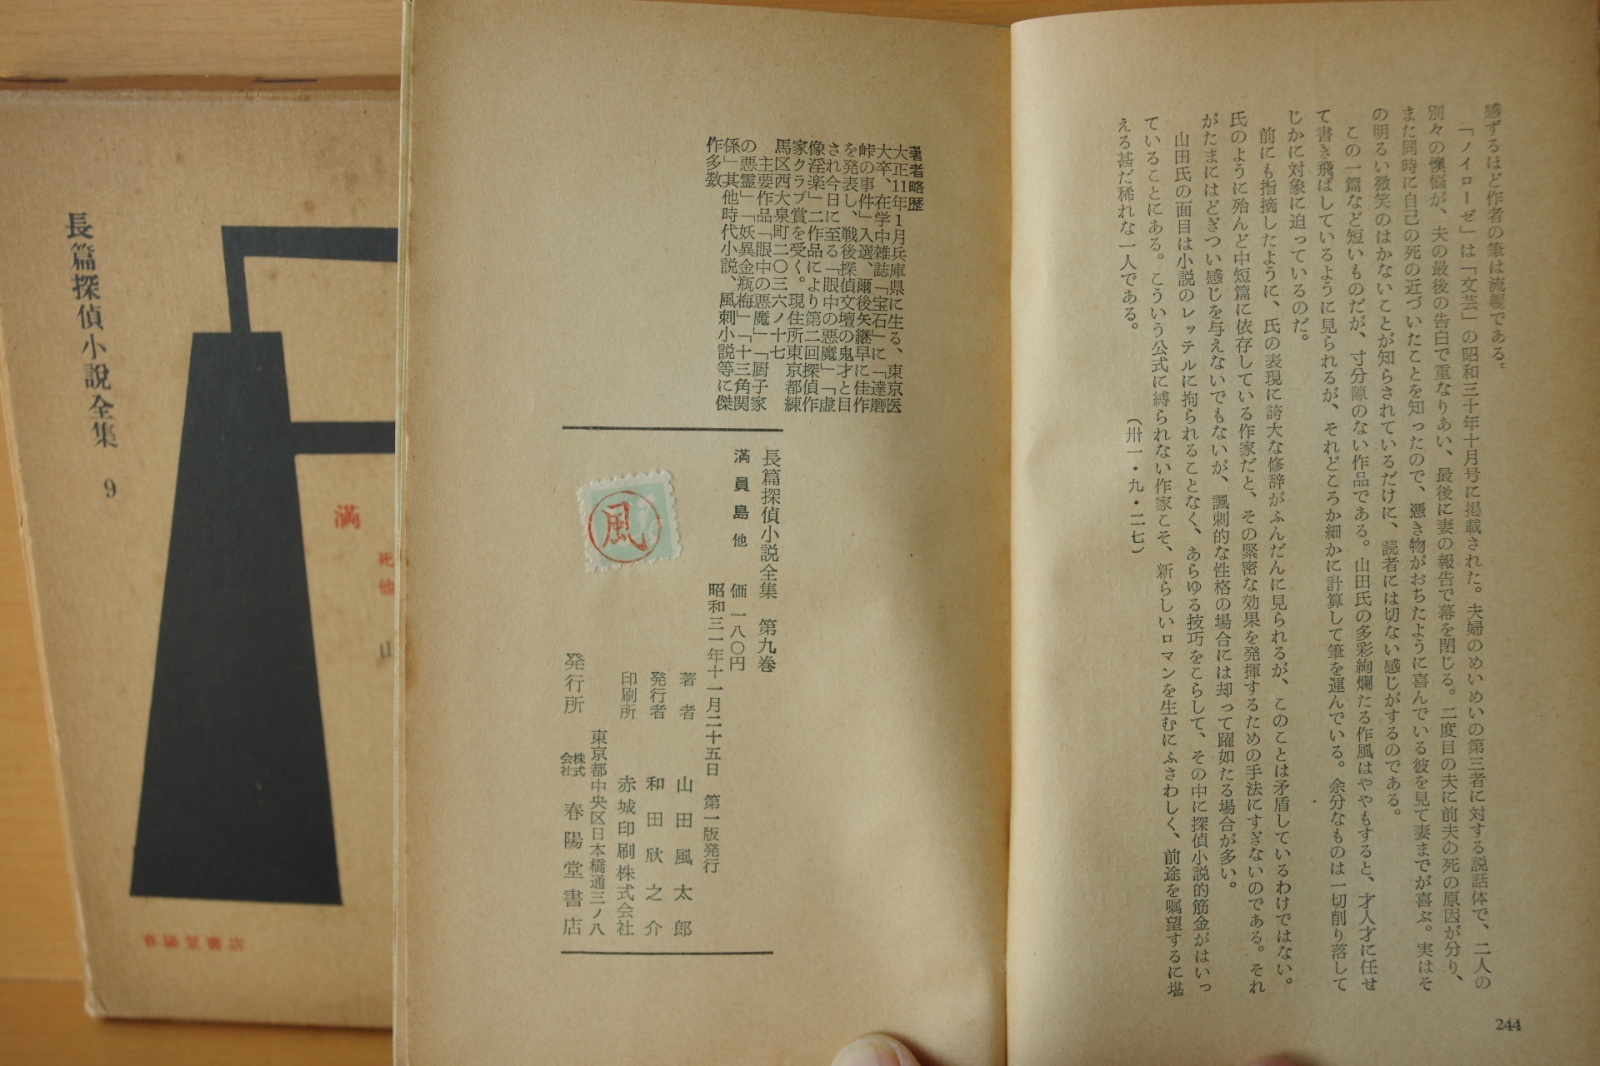 感ずるほど作者の筆は流暢である。
「ノイローゼ」は「文芸」の昭和三十年十月号に掲載された。夫婦のめいめいの第三者に対する説話体で、二人の
別々の懊悩が、夫の最後の告白で重なりあい、最後に妻の報告で幕を閉じる。二度目の夫に前夫の死の原因が分り、
また同時に自己の死の近づいたことを知ったので、憑き物がおちたように喜んでいる彼を見て妻までが喜ぶ。実はそ
の明るい微笑のはかないことが知らされているだけに、読者には切ない感じがするのである。
この一篇など短いものだが、寸分隙のない作品である。山田氏の多彩絢爛たる作風はややもすると、才人才に任せ
て書き飛ばしているように見られるが、それどころか細かに計算して筆を運んでいる。余分なものは一切削り落して
じかに対象に迫っているのだ。
前にも指摘したように、氏の表現に誇大な修辞がふんだんに見られるが、このことは矛盾しているわけではない。
氏のように殆んど中短篇に依存している作家だと、その緊密な効果を発揮するための手法にすぎないのである。それ
がたまにはどぎつい感じを与えないでもないが、諷刺的な性格の場合には却って躍如たる場合が多い。
山田氏の面目は小説のレッテルに拘られることなく、あらゆる技巧をこらして、その中に探偵小説的筋金がはいっ
ていることにある。こういう公式に縛られない作家こそ、新らしいロマンを生むにふさわしく、前途を嘱望するに堪
える甚だ稀れな一人である。
（卅一・九・二七）
244
著者略歴
大正11年1月兵庫県に生る、東京医
大卒、在学中雑誌「宝石」に「達磨
峠の事件」入選、爾後矢継早に佳作
を発表し、戦後探偵文壇の鬼才と目
され今日に至る「眼中の悪魔」「虚
像淫楽」二作品により第二回探偵作
家クラブ賞を受く。現住所東京都練
馬区西大泉町二〇三六ノ十七
主要作品「眼中の悪魔」「厨子家
の悪霊」「妖異金瓶梅」「十三角関
係」其他時代小説、風刺小説等に傑
作多数
長篇探偵小説全集 第九巻
満員島他 価一八〇円
昭和三一年十一月二十五日 第一版発行
著者 山田風太郎
発行者 和田欣之介
印刷所 赤城印刷株式会社
東京都中央区日本橋通三ノ八
発行所 株式会社 春陽堂書店
風
長篇探偵小說全集 9
満
死
他
山
春陽堂書店